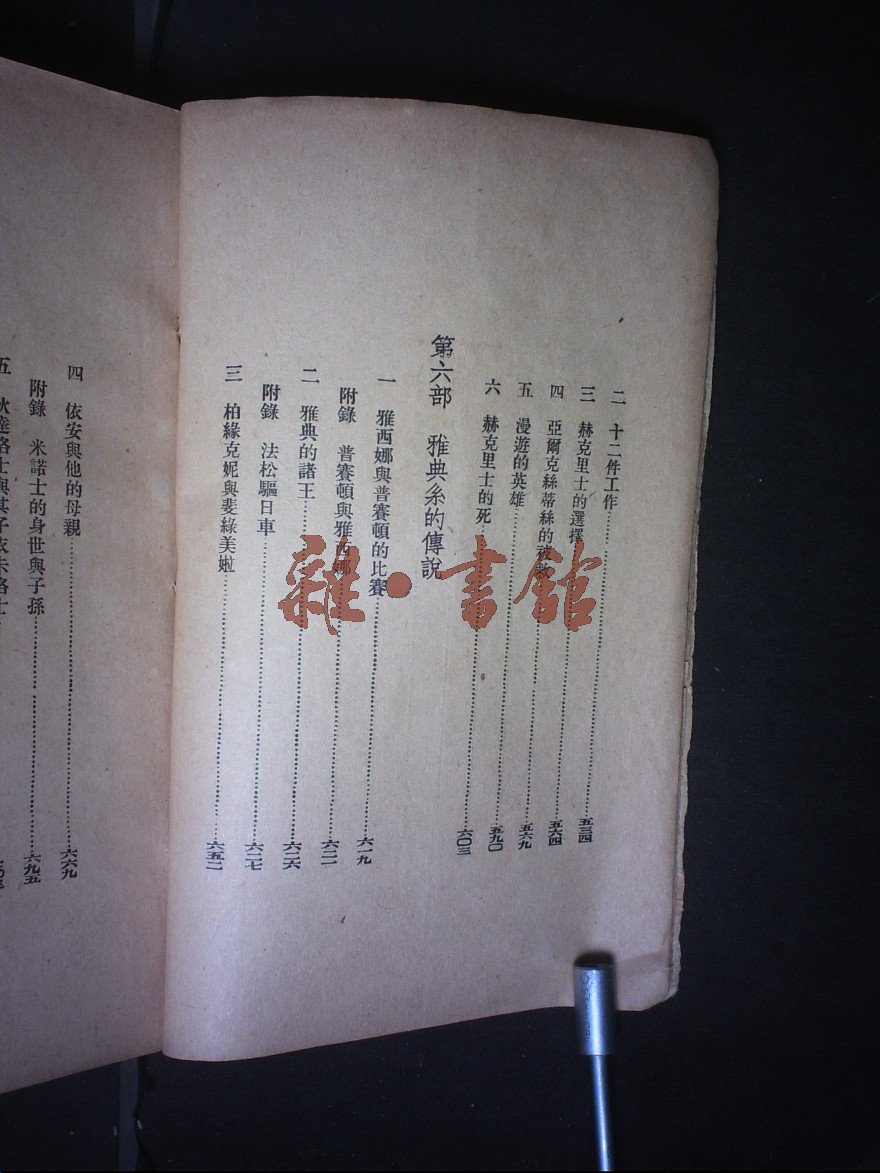 二 十二件工作……五三四
三 赫克里士的選擇……五六四
四 亞爾克絲蒂絲的被救……五六九
五 漫遊的英雄……五九〇
六 赫克里士的死……六〇三
第六部 雅典系的傳說
一 雅西娜與普賽頓的比賽……六一九
附錄 普賽頓與雅西娜……六二二
二 雅典的諸王……六二六
附錄 法松驅日車……六二七
三 柏綠克妮與斐綠美娘……六五二
四 依安與他的母親……六六九
附錄 米諾士的身世與子孫……六九五
五
雜·書館